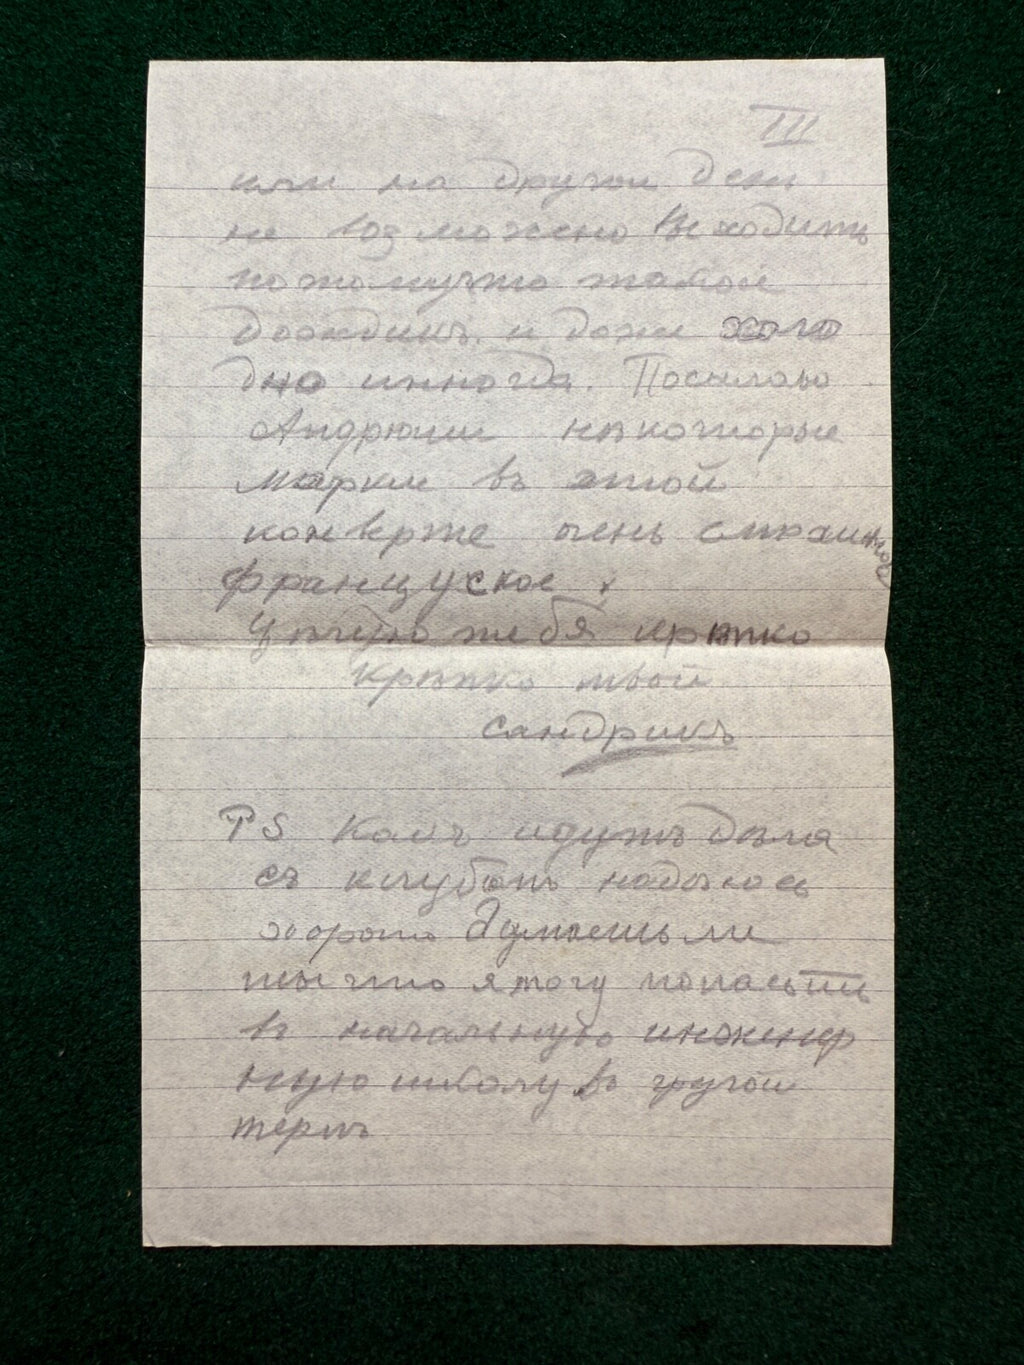 III
или на другой день
не возможно выходить
потомучто такой
дождикъ и даже холо
дно иногда. Посылаю
Андрюши нѣкоторые
марки въ этой
конверте очень странное
француское.
Цѣлую тебя крѣпко
крѣпко твой
Сандрикъ
PS Какъ идутъ дѣла
съ клубомъ надѣюсь
хорошо Думаешь ли
ты что я могу попасьть
въ начальную инженер
ную школу въ другой
термъ